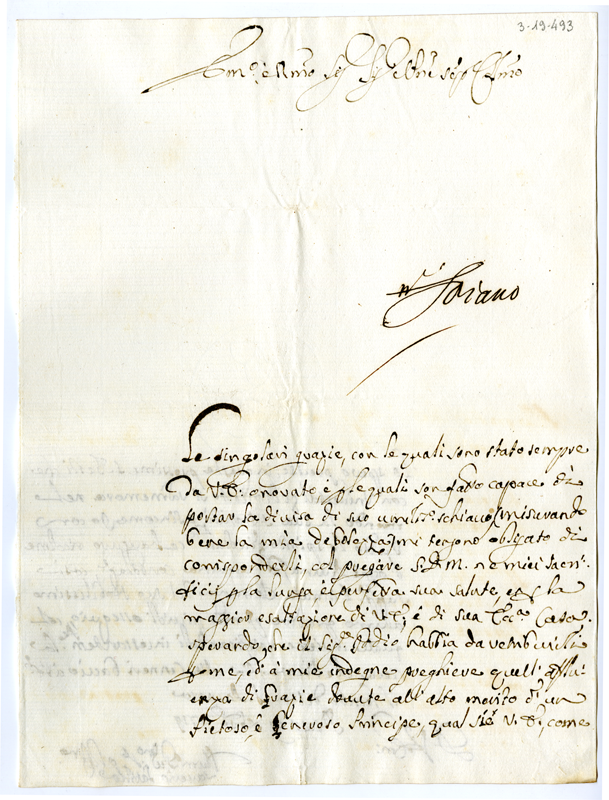 3-19-493
Em.o e R.mo Sig.r Sig.r e P.ne sup.
Soriano
Le singolari grazie, con le quali sono stato sempre
da V.E. onorato, è p le quali son fatto capace di
portar la divisa di suo umil.o schiavo, misurando
bene la mia debolezza, mi tengono obligato di
corrisponderli, col pregare S.D.M. ne miei sacri-
ficij p la lunga, è perfetta sua salute, e p la
maggior esaltazione di V.E., è di sua Ecc.a Casa.
sperando, che il Sig.r Iddio habbia da
me, ed à mie indegne preghiere quell' afflu-
enza di Grazie dovute all' alto merito d' un
Pietoso, è Generoso Principe, qual si è V.E., come